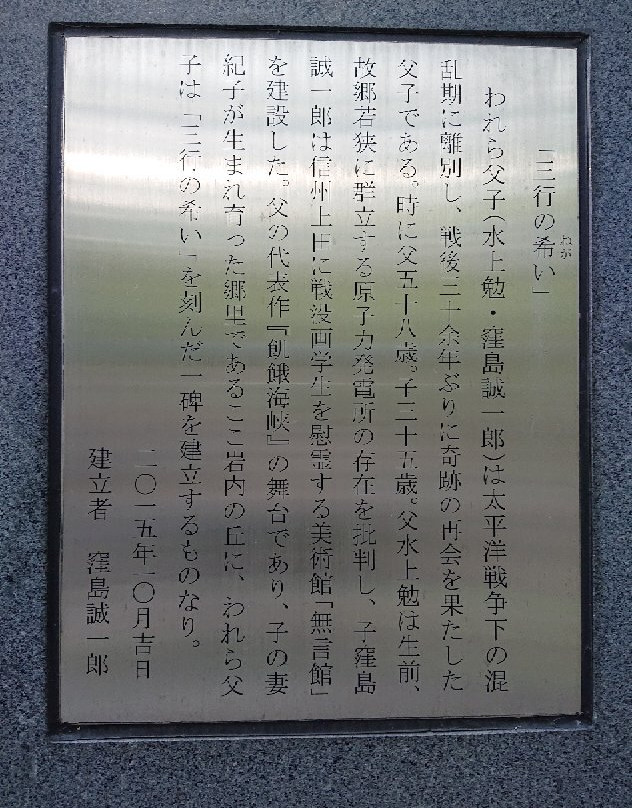 「三行の希い」
ねが
われら父子（水上勉・窪島誠一郎）は太平洋戦争下の混
乱期に離別し、戦後三十余年ぶりに奇跡の再会を果たした
父子である。時に父五十八歳。子三十五歳。父水上勉は生前、
故郷若狭に群立する原子力発電所の存在を批判し、子窪島
誠一郎は信州上田に戦没画学生を慰霊する美術館「無言館」
を建設した。父の代表作『飢餓海峡』の舞台であり、子の妻
紀子が生まれ育った郷里であるここ岩内の丘に、われら父
子は「三行の希い」を刻んだ一碑を建立するものなり。
二〇一五年一〇月吉日
建立者 窪島誠一郎